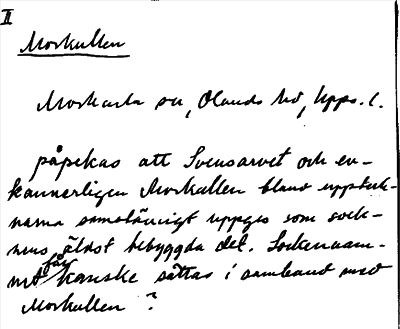 II
Morkullen
Morkarla sn, Olands hd, Upps. l.
påpekas att Svensarvet och en-
kannerligen Morkullen bland uppteck-
narna samstämmigt uppges som sock-
nens äldst bebyggda del. Sockennam-
net får kanske sättas i samband med
Morkullen?